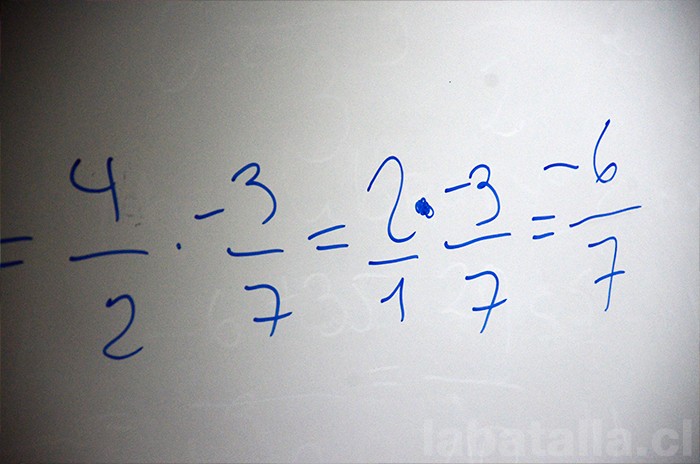 = 4/2 · -3/7 = 2/1 · -3/7 = -6/7
labatalla.cl